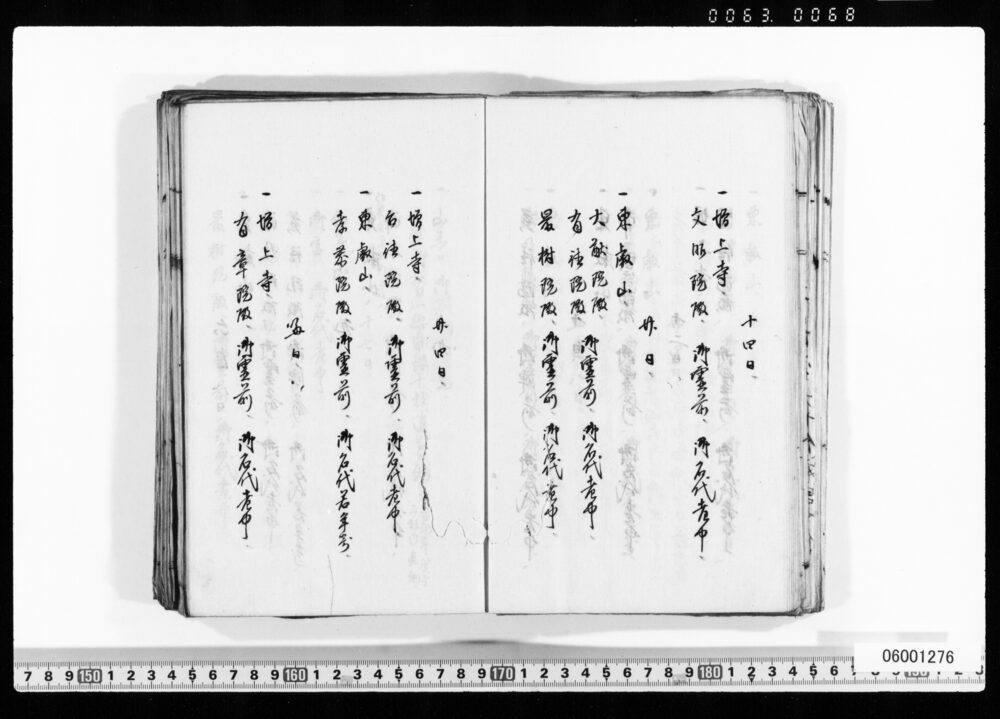 0063. 0068
十四日、
一 増上寺、
文昭院殿、御霊前、御名代老中、
廿日、
一 東叡山、
大猷院殿、御霊前、御名代老中、
有徳院殿
最樹院殿、御名代老中、
廿四日、
一 増上寺、
台徳院殿、御霊前、御名代老中、
一 東叡山、
孝恭院殿、御霊前、御名代若年寄、
晦日、
一 増上寺、
有章院殿、御霊前、御名代老中、
7 8 9 150 1 2 3 4 5 6 7 8 9 160 1 2 3 4 5 6 7 8 9 170 1 2 3 4 5 6 7 8 9 180 1 2 3 4 5 6
06001276